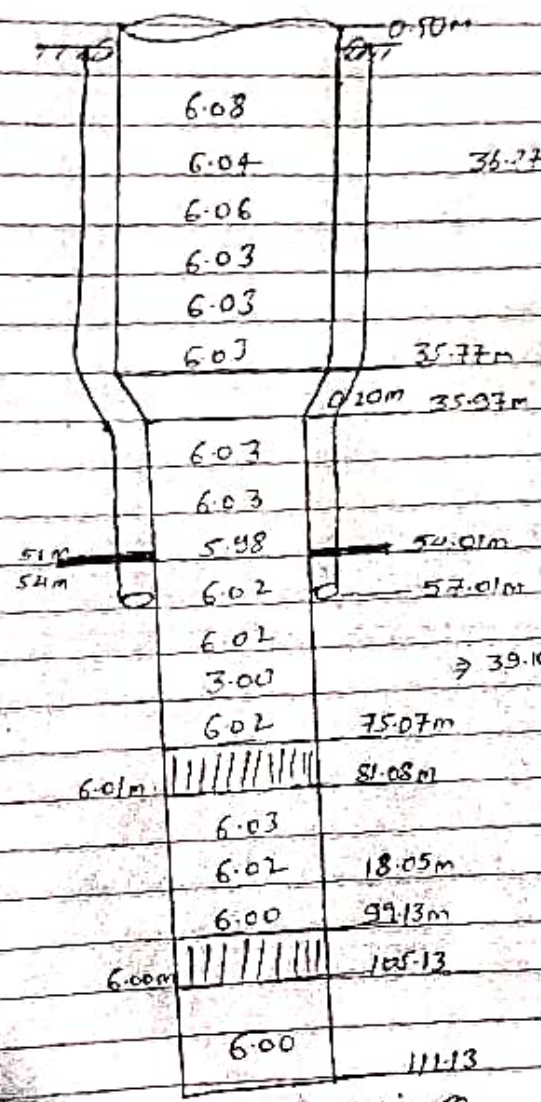 0.50m
6.08
6.04 36.27
6.06
6.03
6.03
6.03 35.77m
0.20m 35.97m
6.03
6.03
51m 5.98 54.01m
54m 6.02 57.01m
6.02
3.00 → 39.10
6.02 75.07m
6.01m 81.08m
6.03
6.02 18.05m
6.00 99.13m
6.00m 105.13
6.00 111.13